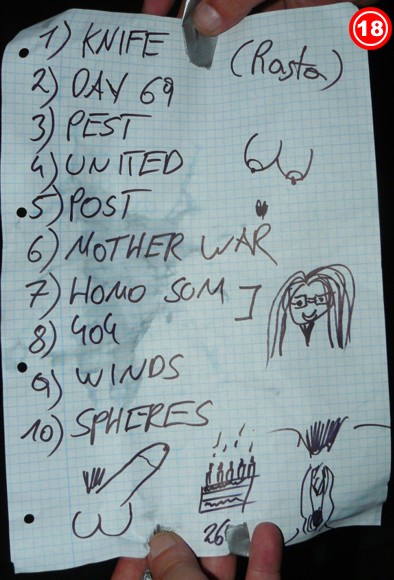 18
1) KNIFE
(Rasta)
2) DAY 69
3) PEST
4) UNITED
5) POST
6) MOTHER WAR
7) HOMO SOM ]
8) 404
9) WINDS
10) SPHERES
26